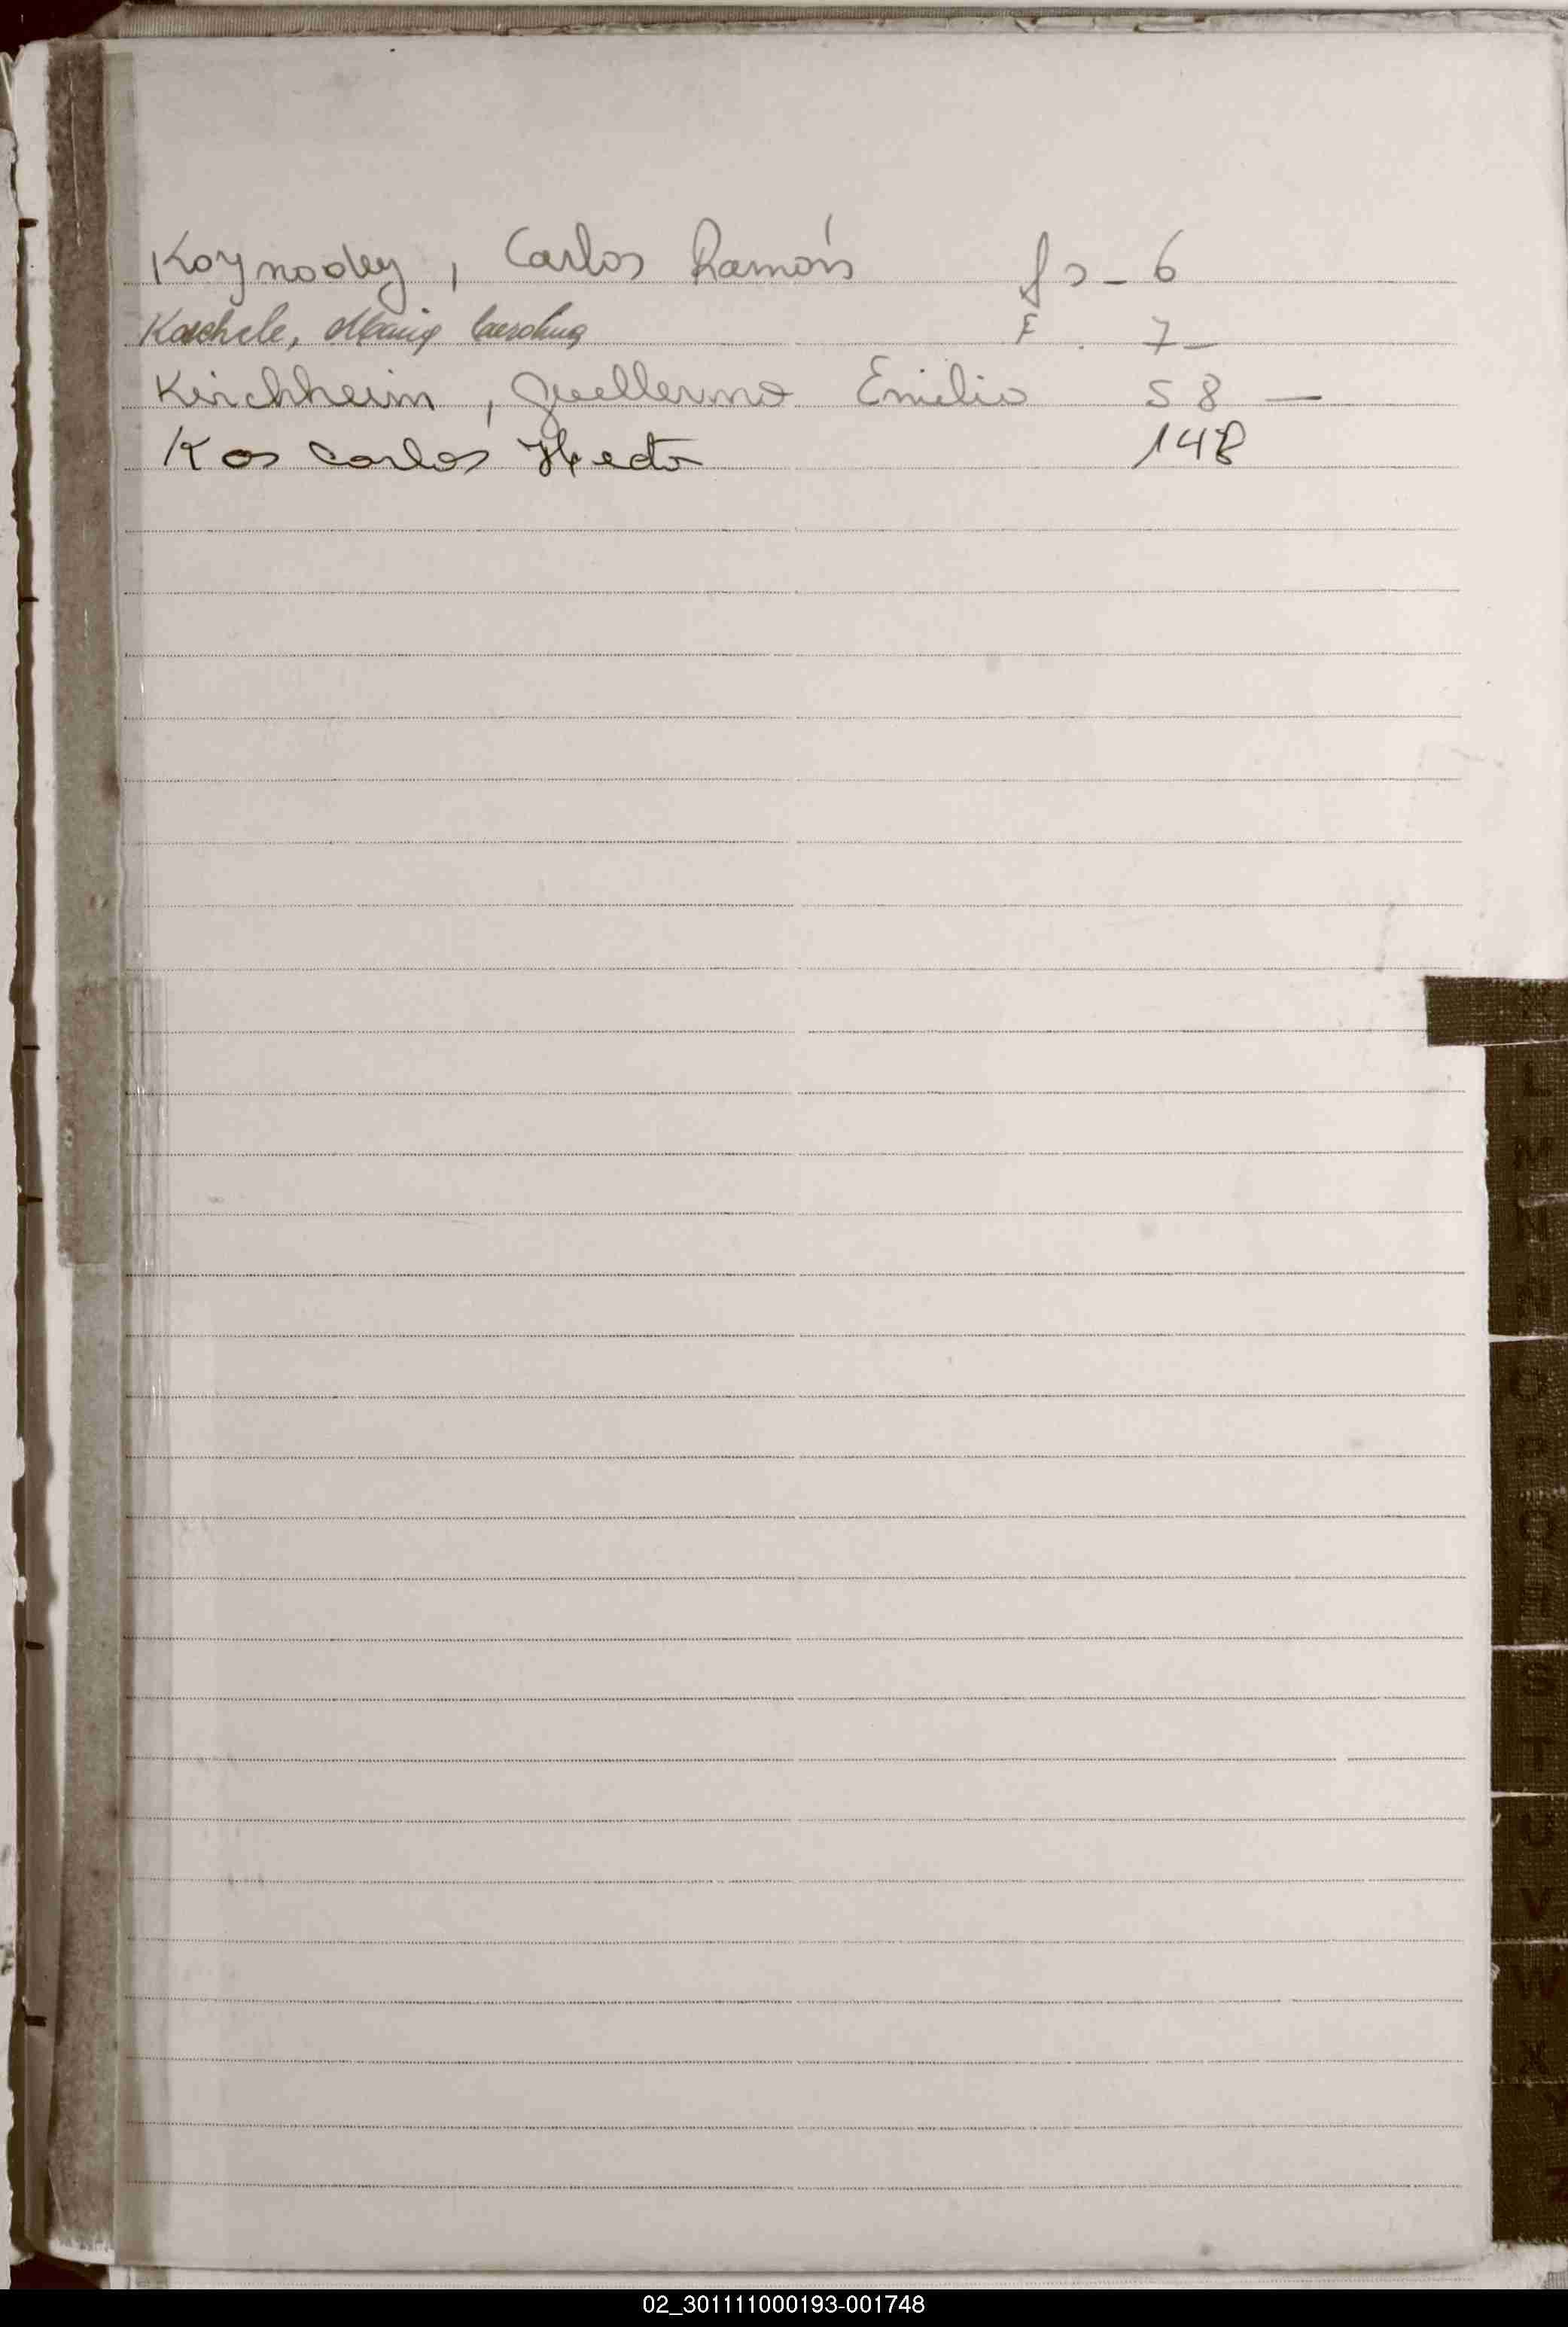 Koynodey, Carlos Ramón fs_ 6
Kaechele, María Carolina F. 7_
Kirchheim, Guillermo Emilio 58 —
Kos Carlos Hector 148
L
M
N
Ñ
O
P
Q
R
S
T
U
V
W
X
Y
Z
02_301111000193-001748